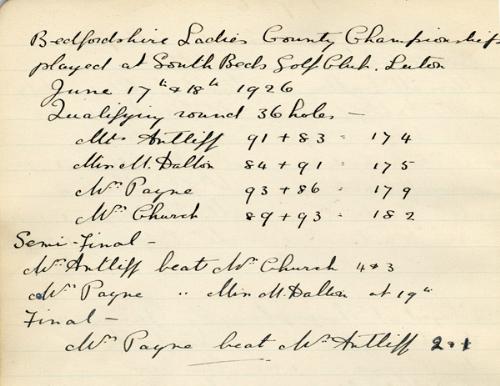 Bedfordshire Ladies County Championship
played at South Beds Golf Club. Luton
June 17th & 18th 1926
Qualifying round 36 holes —
Mrs Antliff 91 + 83 = 174
Miss M. Dalton 84 + 91 = 175
Mrs Payne 93 + 86 = 179
Mrs Church 89 + 93 = 182
Semi-Final —
Mrs Antliff beat Mrs Church 4 & 3
Mrs Payne " Miss M. Dalton at 19th
Final —
Mrs Payne beat Mrs Antliff 2 + 1